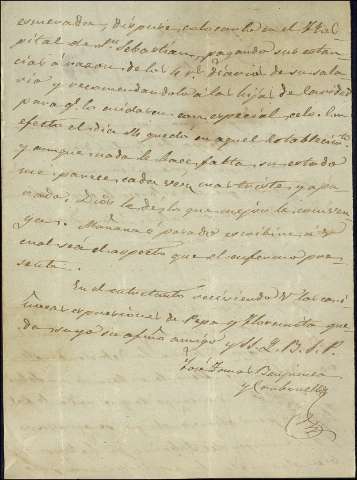 esmerada, dispuse colocarlo en el Hos
pital de Sn. Sebastian, pagando sus estan
cias á razon de los 4 rs. diarios de su sala
rio y recomendandolo á las hijas de Caridad
para q. lo cuidasen con especial celo. En
efecto el dia 14 quedó en aquel establecimto.
y aunque nada le hace falta, su estado
me parece cada vez mas triste y apu
rado. Dios le dé lo que mejor le conven
ga. Mañana ó pasado escribiré á V.
cual sea el aspecto que el enfermo pre
senta.
En el entretanto reciviendo V. las cari
ñosas espresiones de Pepa y Florencita que
da suyo su afmo. amigo y SS. Q. B. S. M.
José Tomas
y